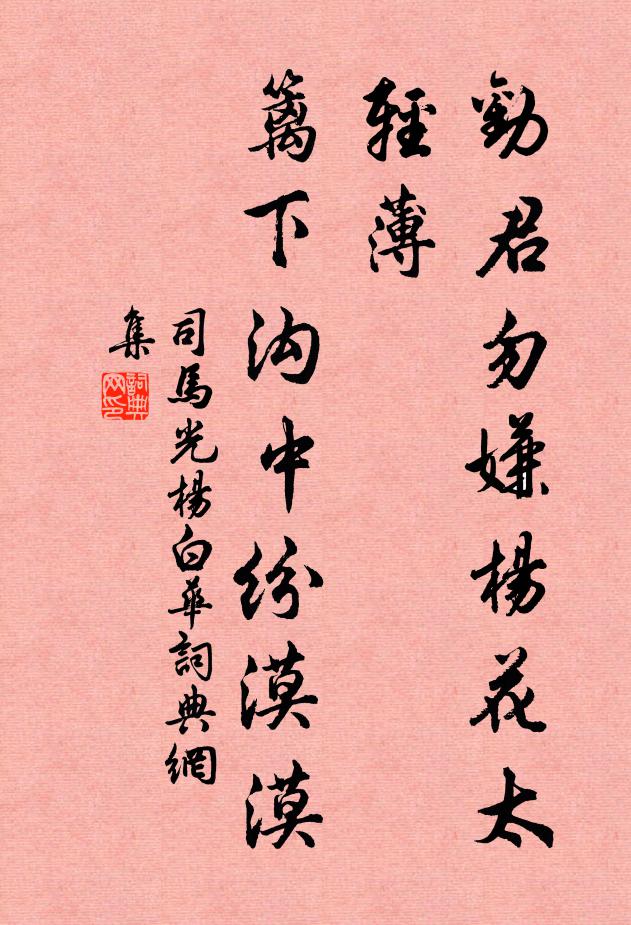 勸君勿嫌楊花太
輕薄
篱下沟中紛漠漠
司馬光楊白華詞典網
集
詞典
网印